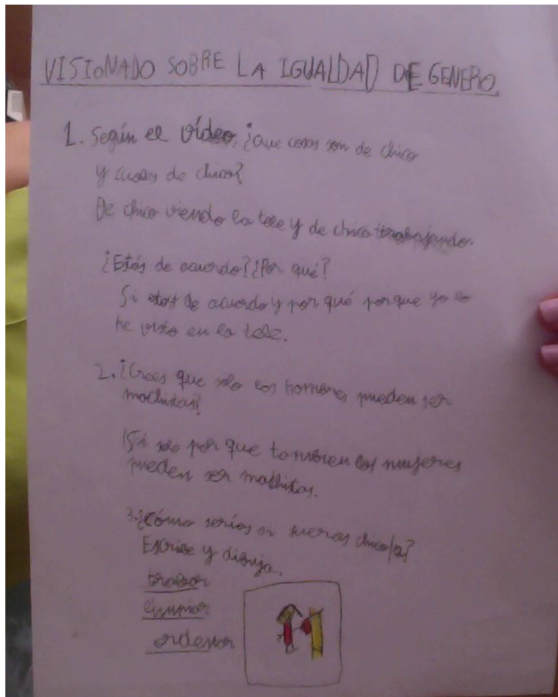 VISIONADO SOBRE LA IGUALDAD DE GENERO.
1. Según el vídeo, ¿que cosas son de chico
y cuales de chica?
De chico viendo la tele y de chica trabajando.
¿Estás de acuerdo? ¿Por qué?
Si estoy de acuerdo y por qué porque yo lo
he visto en la tele.
2. ¿Crees que solo los hombres pueden ser
machistas?
Si solo por que tambien las mujeres
pueden ser machistas.
3. ¿Cómo serías si fueras chico/a?
Escribe y dibuja.
ordenar